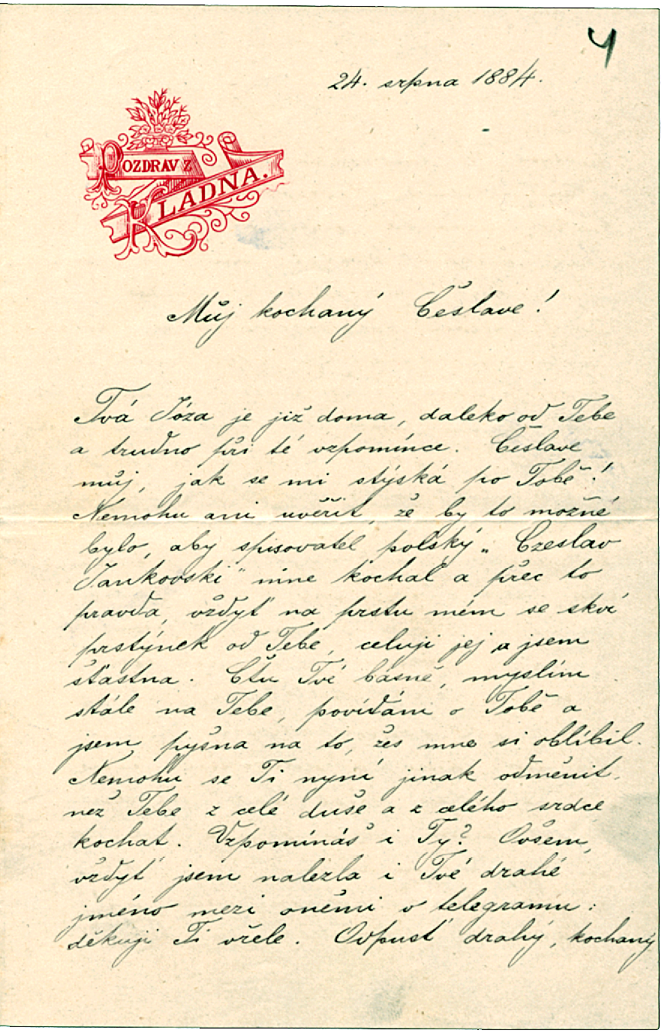 4
24. srpna 1884.
POZDRAV Z
KLADNA.
Můj kochaný Česlave!
Tvá Józa je již doma, daleko od Tebe
a trudno při té vzpomínce. Česlave
můj, jak se mi stýská po Tobě!
Nemohu ani uvěřit, že by to možné
bylo, aby spisovatel polský „Czeslav
Jankovski" mne kochal a přec to
pravda, vždyť na prstu mém se skví
prstýnek od Tebe, celuji jej a jsem
šťastna. Čtu Tvé básně, myslím
stále na Tebe, povídám o Tobě a
jsem pyšna na to, žes mne si oblíbil.
Nemohu se Ti nyní jinak odměnit,
než Tebe z celé duše a z celého srdce
kochat. Vzpomínáš i Ty? Ovšem,
vždyť jsem nalezla i Tvé drahé
jméno mezi oněmi v telegramu:
děkuji Ti vřele. Odpusť drahý, kochaný